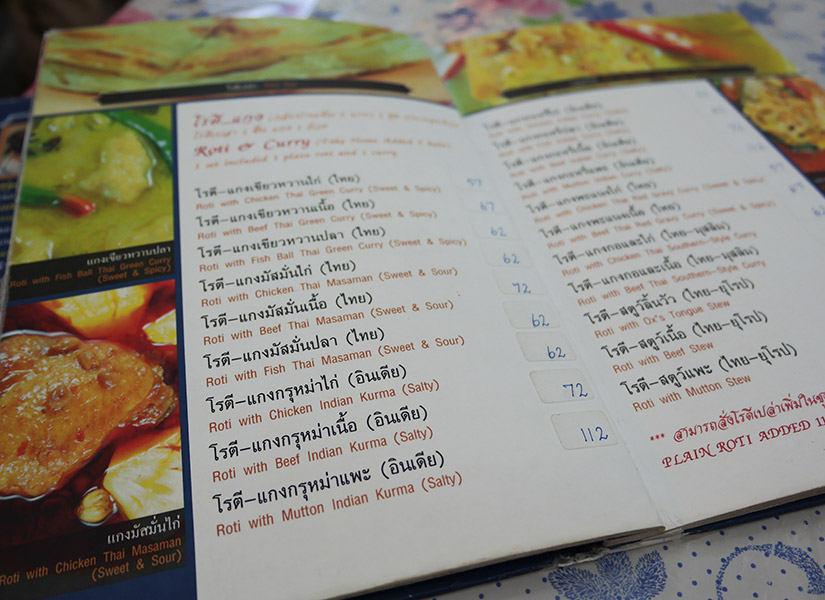 โรตี-แกง
Roti & Curry (Take Home Added 5 baht)
1 set included 1 plain roti and 1 curry
โรตี-แกงเขียวหวานไก่ (ไทย)
Roti with Chicken Thai Green Curry (Sweet & Spicy)
57
โรตี-แกงเขียวหวานเนื้อ (ไทย)
Roti with Beef Thai Green Curry (Sweet & Spicy)
67
โรตี-แกงเขียวหวานปลา (ไทย)
Roti with Fish Ball Thai Green Curry (Sweet & Spicy)
62
โรตี-แกงมัสมั่นไก่ (ไทย)
Roti with Chicken Thai Masaman (Sweet & Sour)
62
โรตี-แกงมัสมั่นเนื้อ (ไทย)
Roti with Beef Thai Masaman (Sweet & Sour)
72
โรตี-แกงมัสมั่นปลา (ไทย)
Roti with Fish Thai Masaman (Sweet & Sour)
62
โรตี-แกงกรุหม่าไก่ (อินเดีย)
Roti with Chicken Indian Kurma (Salty)
62
โรตี-แกงกรุหม่าเนื้อ (อินเดีย)
Roti with Beef Indian Kurma (Salty)
72
โรตี-แกงกรุหม่าแพะ (อินเดีย)
Roti with Mutton Indian Kurma (Salty)
112
แกงเขียวหวานปลา
Roti with Fish Ball Thai Green Curry
(Sweet & Spicy)
แกงมัสมั่นไก่
Roti with Chicken Thai Masaman
(Sweet & Sour)
โรตี-แกงพะแนงไก่ (ไทย)
Roti with Chicken Thai Red Gravy Curry (Sweet & Spicy)
โรตี-แกงพะแนงเนื้อ (ไทย)
Roti with Beef Thai Red Gravy Curry (Sweet & Spicy)
โรตี-แกงกอและไก่ (ไทย-มุสลิม)
Roti with Chicken Thai Southern-Style Curry
โรตี-แกงกอและเนื้อ (ไทย-มุสลิม)
Roti with Beef Thai Southern-Style Curry
โรตี-สตูว์ลิ้นวัว (ไทย-ยุโรป)
Roti with Ox's Tongue Stew
โรตี-สตูว์เนื้อ (ไทย-ยุโรป)
Roti with Beef Stew
โรตี-สตูว์แพะ (ไทย-ยุโรป)
Roti with Mutton Stew
*** สามารถสั่งโรตีเปล่าเพิ่มในชุด
PLAIN ROTI ADDED